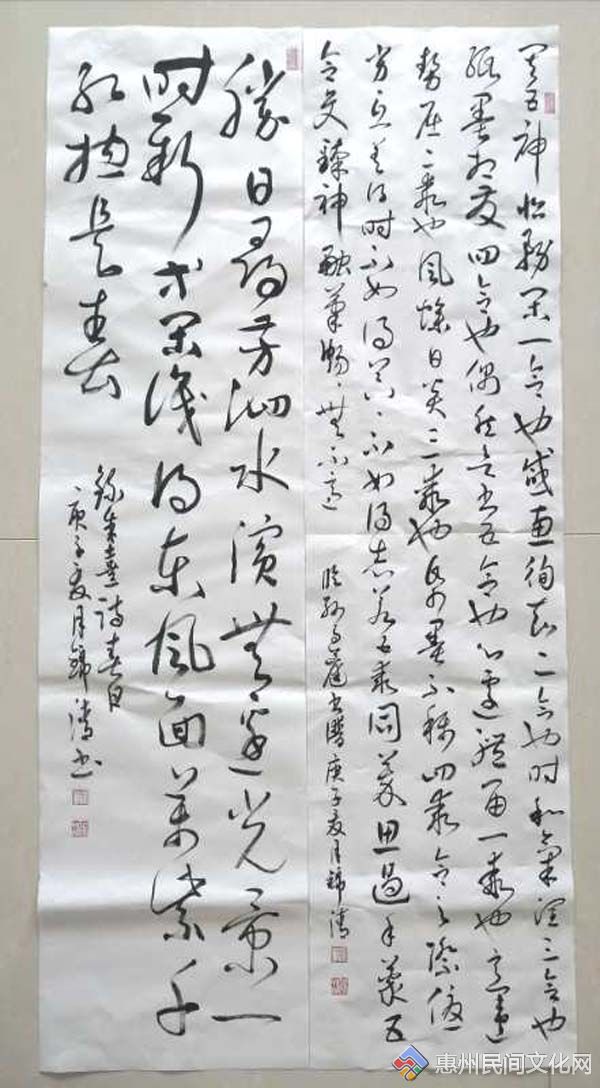 神怡務閑一合也感惠徇知二合也時和氣潤三合也
紙墨相發四合也偶然欲書五合也心遽體留一乖也意違
勢屈二乖也風燥日炎三乖也紙墨不稱四乖合之際優
劣互差得時不如得器々不如得志若五乖同萃思遏手蒙五
合交臻神融筆暢々無不適
臨孫過庭書譜庚子夏月清
勝日尋芳泗水濱無邊光景一
時新等閑識得東風面萬紫千
紅揔是春
錄朱熹詩春日
庚子夏月清書
惠州民间文化网